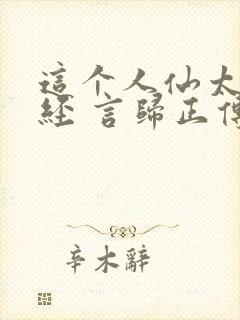 這个人仙太
經 言歸正傳
辛木辭